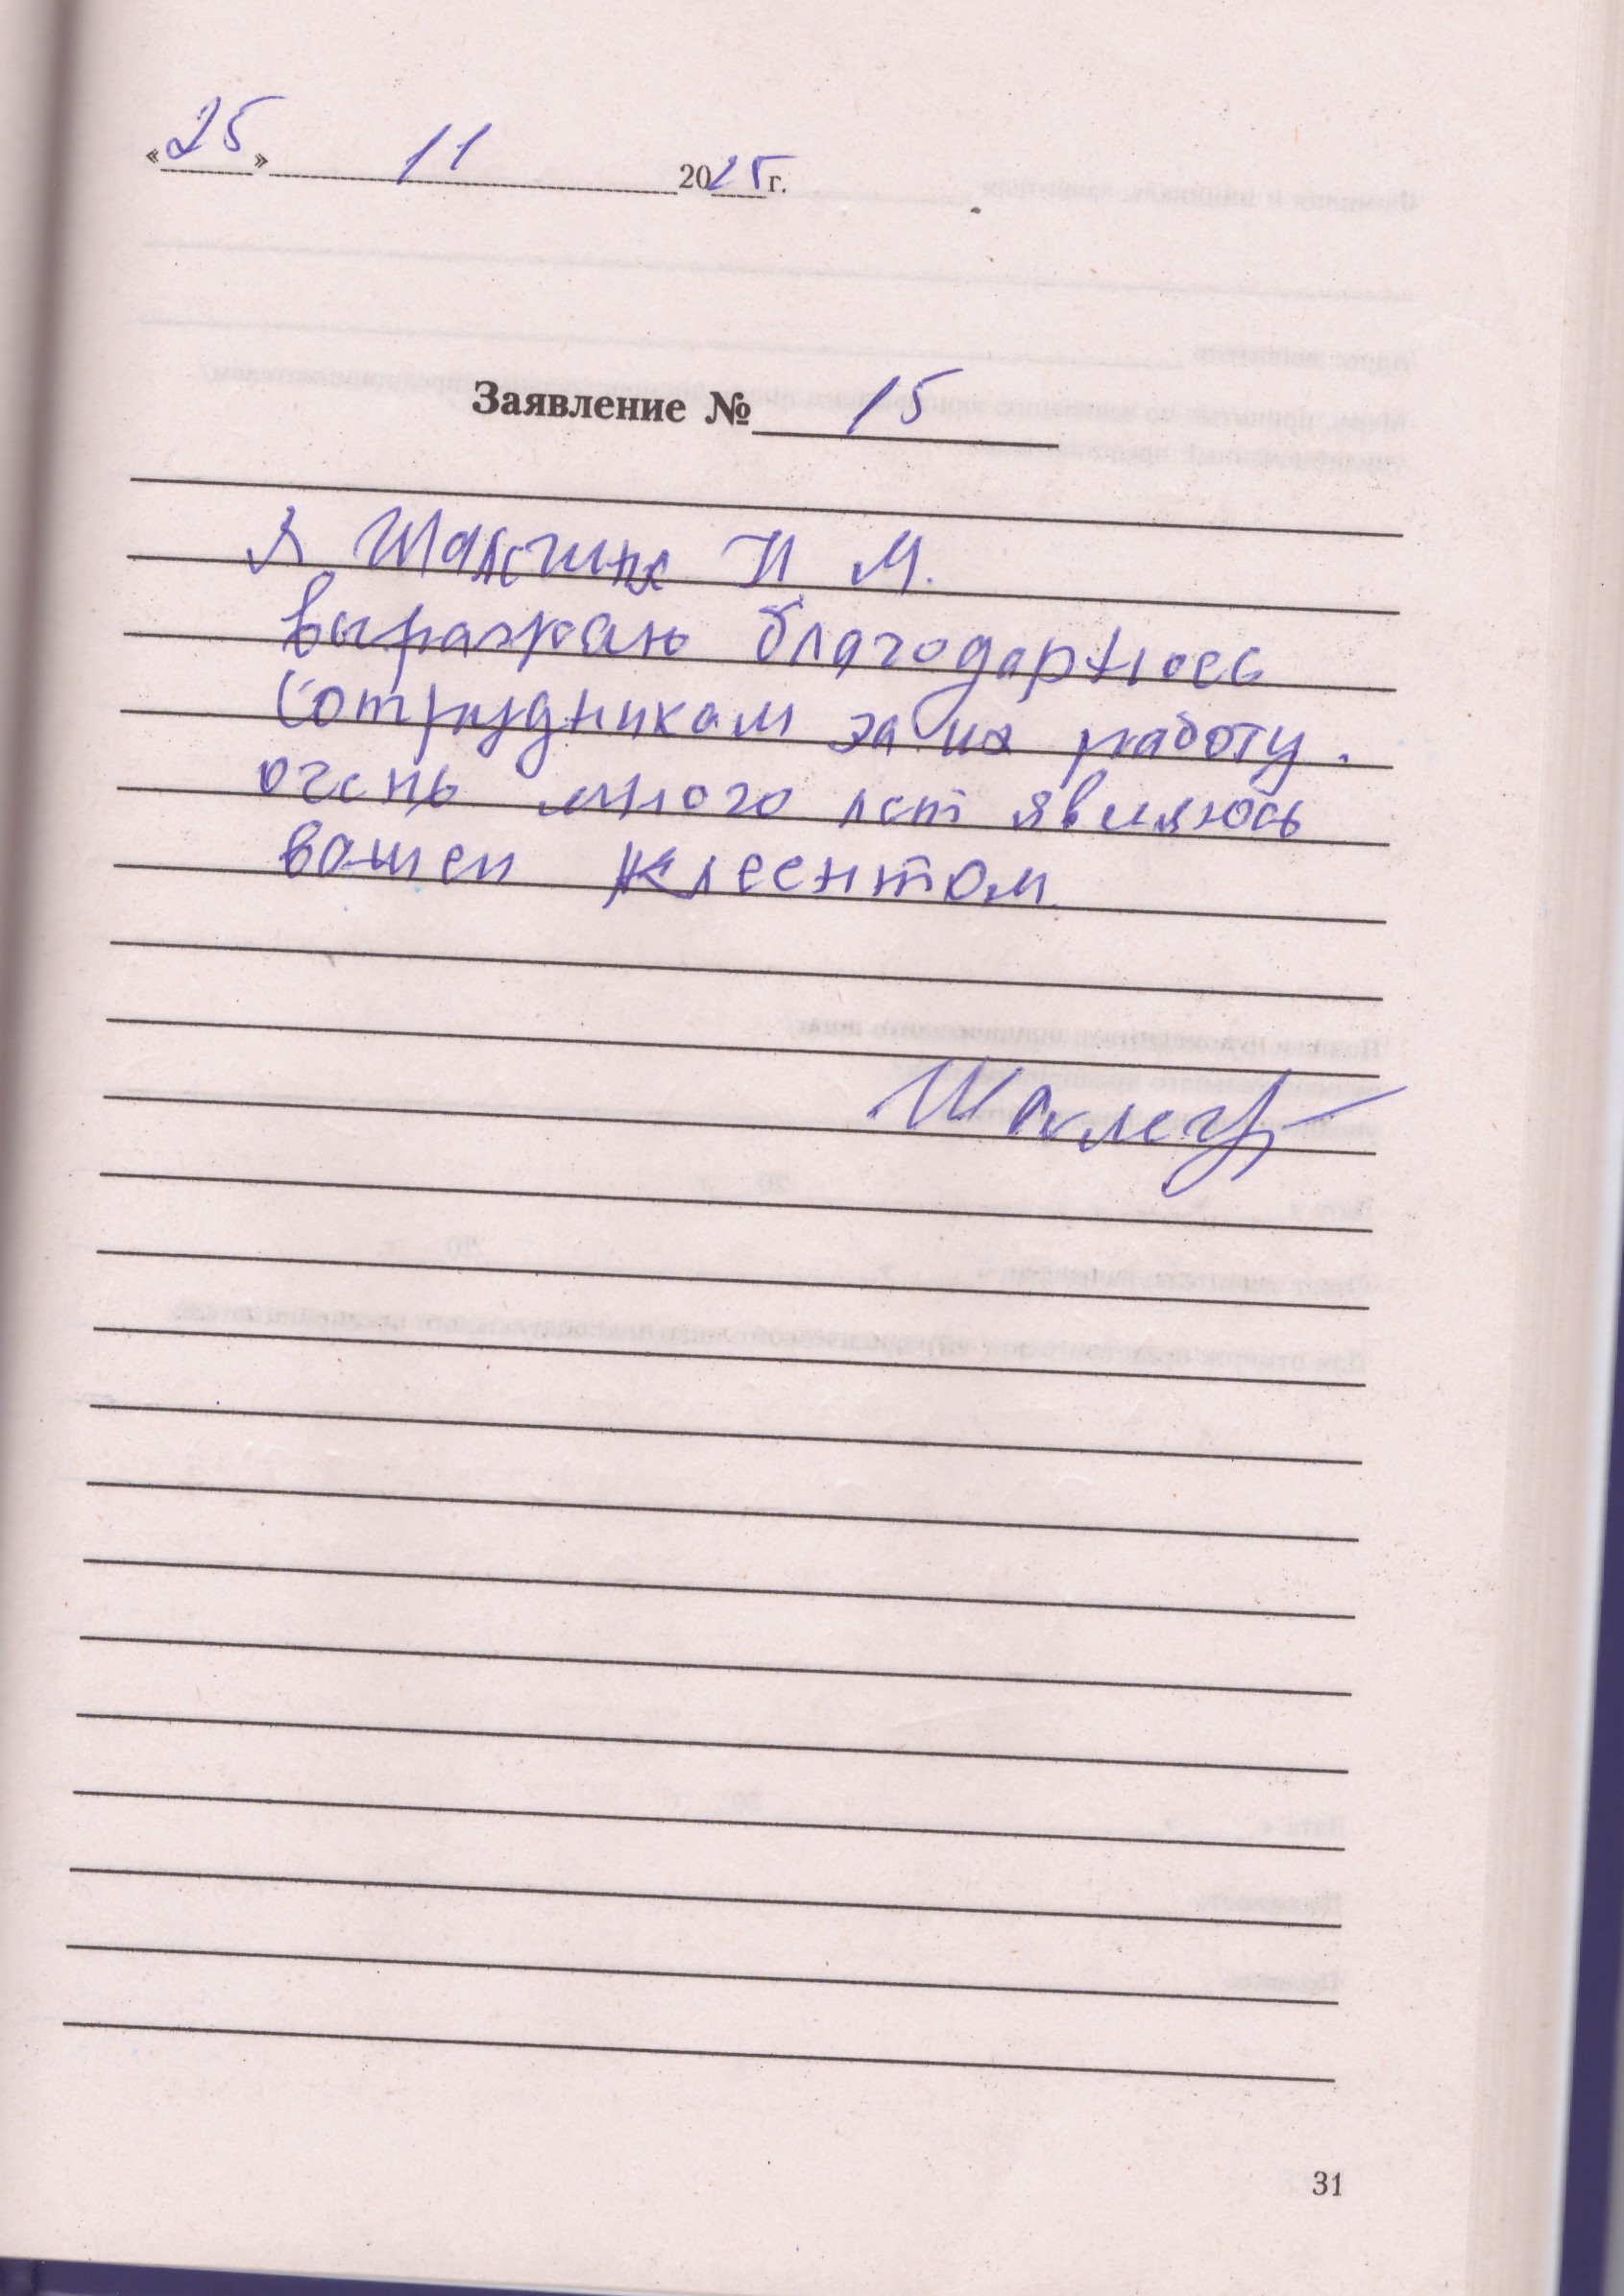 «25» 11 2025 г.
Заявление № 15
Я И М.
выражаю благодарнос
сотрудникам за их работу.
очень много лет являюсь
вашем клеентом.
31